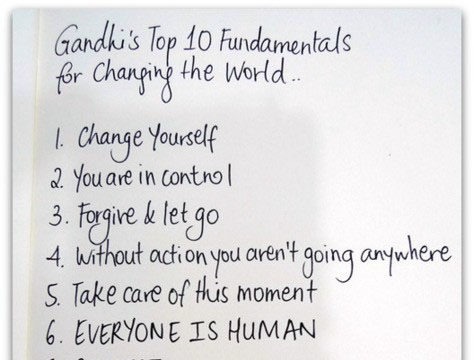 Gandhi's Top 10 Fundamentals
for Changing the World..
1. Change Yourself
2. You are in control
3. Forgive & let go
4. Without action you aren't going anywhere
5. Take care of this moment
6. EVERYONE IS HUMAN